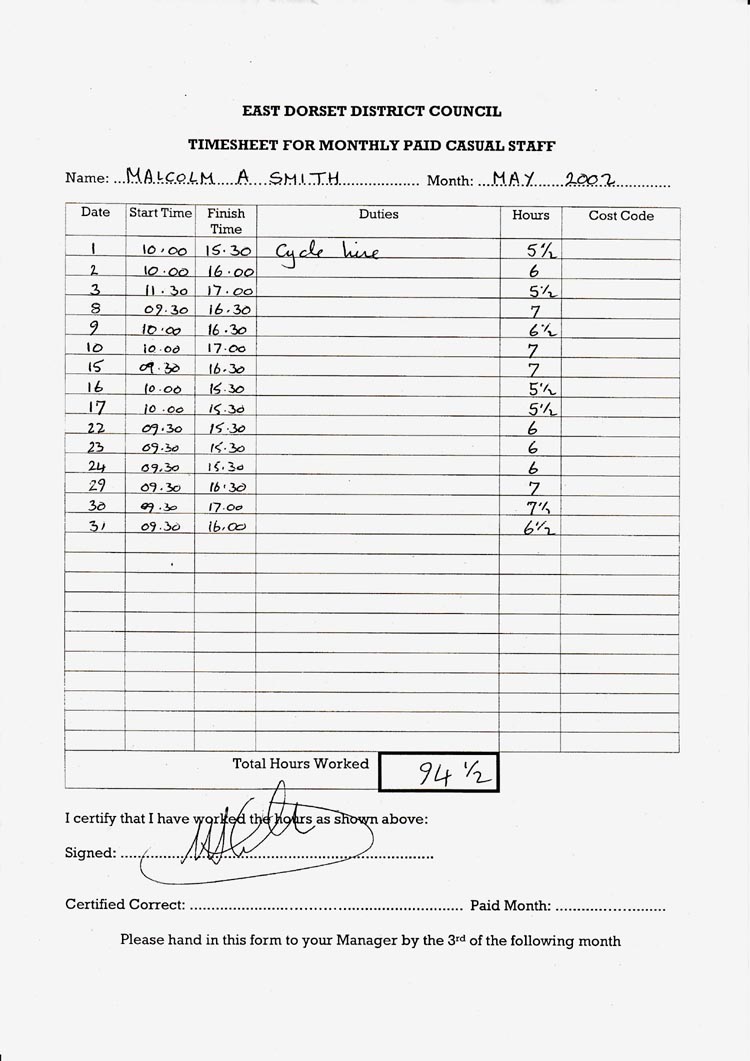 EAST DORSET DISTRICT COUNCIL
TIMESHEET FOR MONTHLY PAID CASUAL STAFF
Name: ...MALCOLM A SMITH.................. Month: ...MAY......2002.............
Date Start Time Finish Time Duties Hours Cost Code
1 10.00 15.30 Cycle hire 5½
2 10.00 16.00 6
3 11.30 17.00 5½
8 09.30 16.30 7
9 10.00 16.30 6½
10 10.00 17.00 7
15 09.30 16.30 7
16 10.00 15.30 5½
17 10.00 15.30 5½
22 09.30 15.30 6
23 09.30 15.30 6
24 09.30 15.30 6
29 09.30 16.30 7
30 09.30 17.00 7½
31 09.30 16.00 6½
Total Hours Worked 94 ½
I certify that I have worked the hours as shown above:
Signed: ..........................................................................
Certified Correct: ............................................................... Paid Month: .........................
Please hand in this form to your Manager by the 3rd of the following month